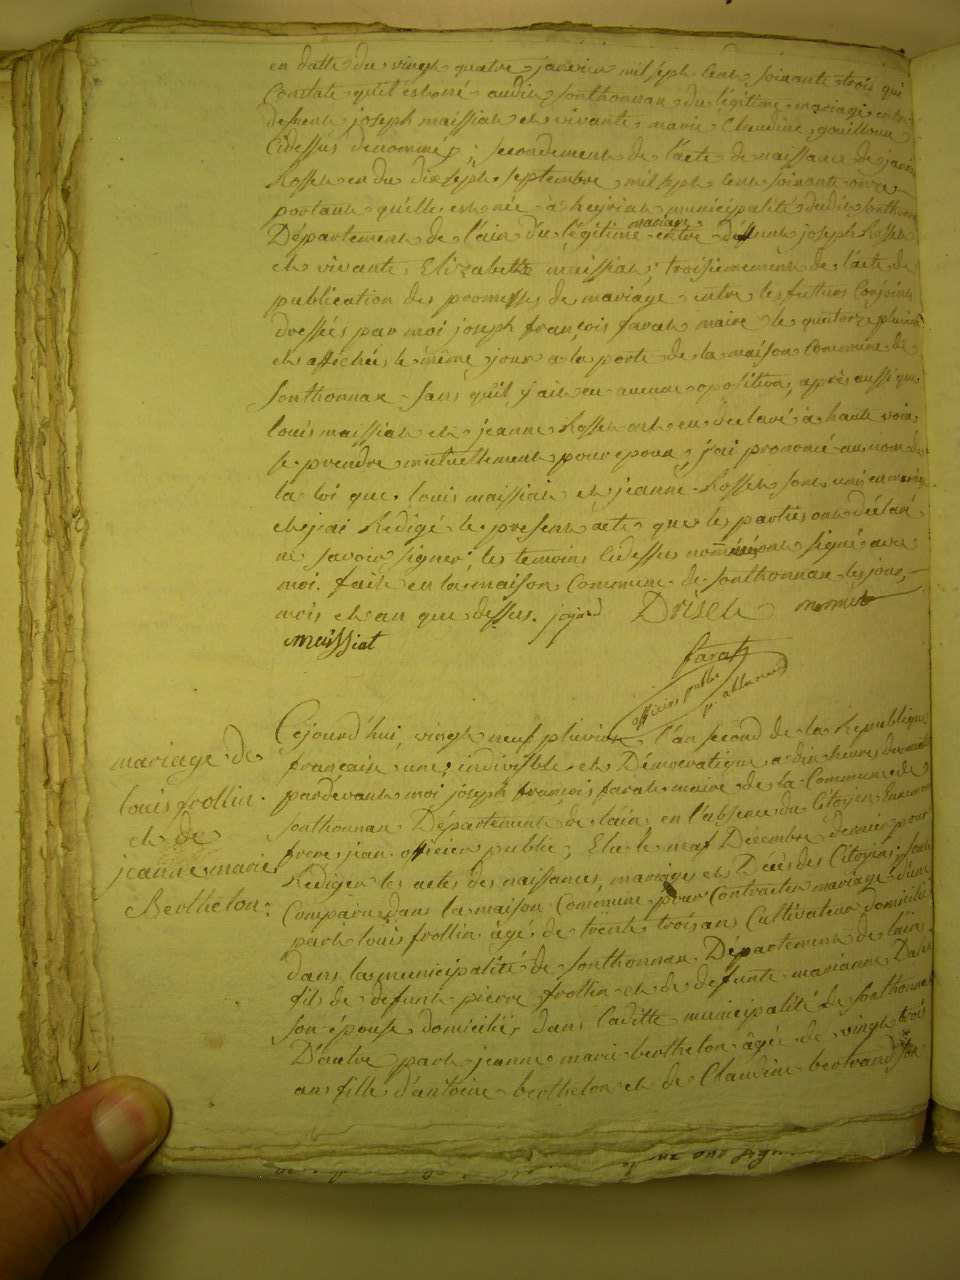 en datte du vingt quatre janvier mil sept cent soixante trois qui
Constate quil est né audit Sonthonnax du légitime mariage entre
defunt joseph maissiat et vivante marie Claudine gouilloux
Cidessus denommés; secondement de l'acte de naissance de jeanne
Rosset en du dix sept septembre mil sept cent soixante onze
portant quelle est née à heyriat municipalité dudit Sonthonnax
Département de l'ain du légitime mariage entre défunt joseph Rosset
et vivante Elizabeth maissiat; troisiemement de l'acte de
publication des promesses de mariage entre les futturs Conjoints
dressées par moi joseph françois farat maire le quatorze pluviose
et affichée le même jour a la porte de la maison Commune de
Sonthonnax sans quil y ait eu aucune oposition, après aussi que
louis maissiat et jeanne Rosset ont eu déclaré à haute voix
se prendre mutuellement pour epoux, j'ai prononcé au nom de
la loi que louis maissiat et jeanne Rosset sont unis en mariage
et j'ai Redigé le present acte que les parties ont déclaré
ne savoir signer, les temoins Cidessus nommés ont signé avec
moi. fait en la maison Commune de Sonthonnax les jour,
mois et an que dessus. Driset
maissiat
farat
officier public
Cejourd'hui, vingt neuf pluviose l'an second de la Republique
mariage de
française une, indivisible et Démocratique a dix heures du matin
louis frollin
pardevant moi joseph françois farat maire de la Commune de
et de
Sonthonnax Département de l'ain en l'absence du Citoyen
jeanne marie
frere jean officier public, Elu le neuf Décembre dernier pour
Berthelon.
Rediger les actes des naissances, mariages et Décès des Citoyens, sont
Comparus dans la maison Commune pour Contracter mariage d'une
part louis frollin âgé de trente trois an Cultivateur domicilié
dans la municipalité de Sonthonnax Département de l'ain
fils de defunt pierre frollin et de defunte marianne
son épouse domiciliés dans laditte municipalité de Sonthonnax
D'autre part jeanne marie berthelon âgée de vingt trois
an fille d'antoine berthelon et de Claudine bertrand son